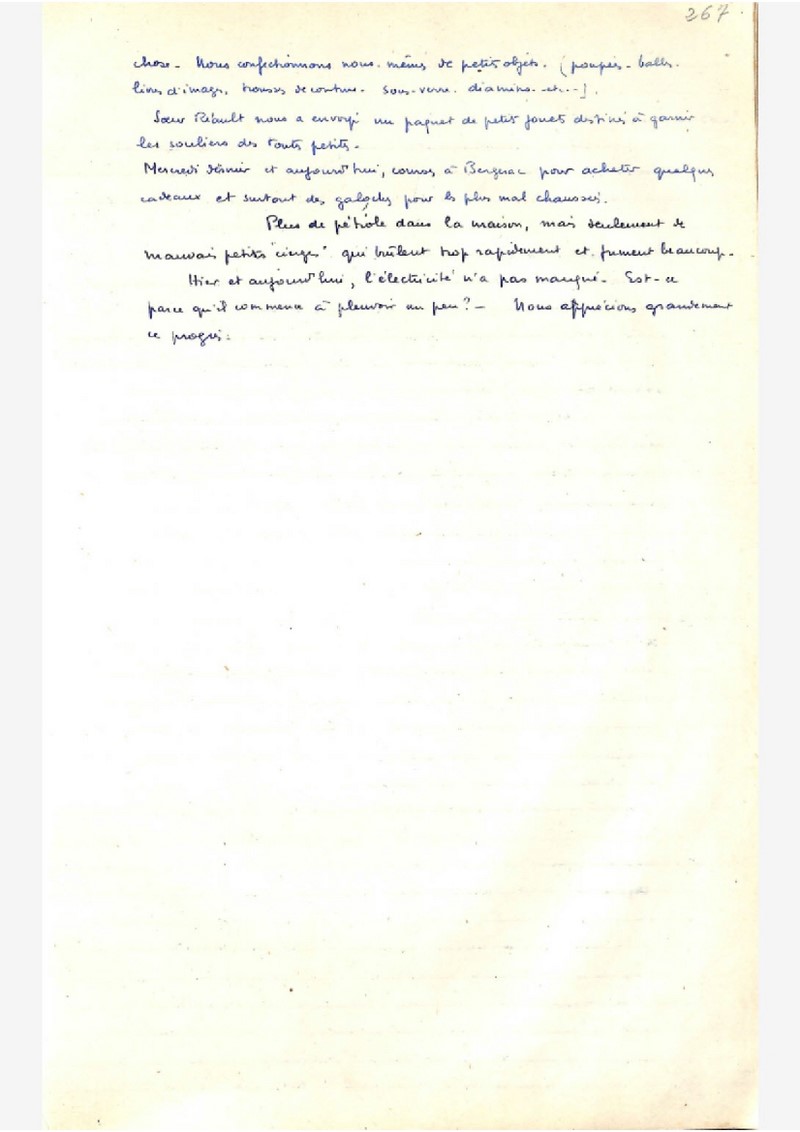 267.
chose - Nous confectionnons nous-mêmes de petits objets. (poupées - balles.
livres d'images, trousses de couture - sous-verre. etc...).
Sœur Réault nous a envoyé un paquet de petits jouets destinés à garnir
les souliers des touts petits.
Mercredi dernier et aujourd'hui, courses à Bergerac pour acheter quelques
cadeaux et surtout des galoches pour les plus mal chaussés.
Plus de pétrole dans la maison, mais seulement de
mauvais petits "cierges" qui brûlent trop rapidement et fument beaucoup.
Hier et aujourd'hui, l'électricité n'a pas manqué. Est-ce
parce qu'il commence à pleuvoir un peu? - Nous apprécions grandement
ce progrès.